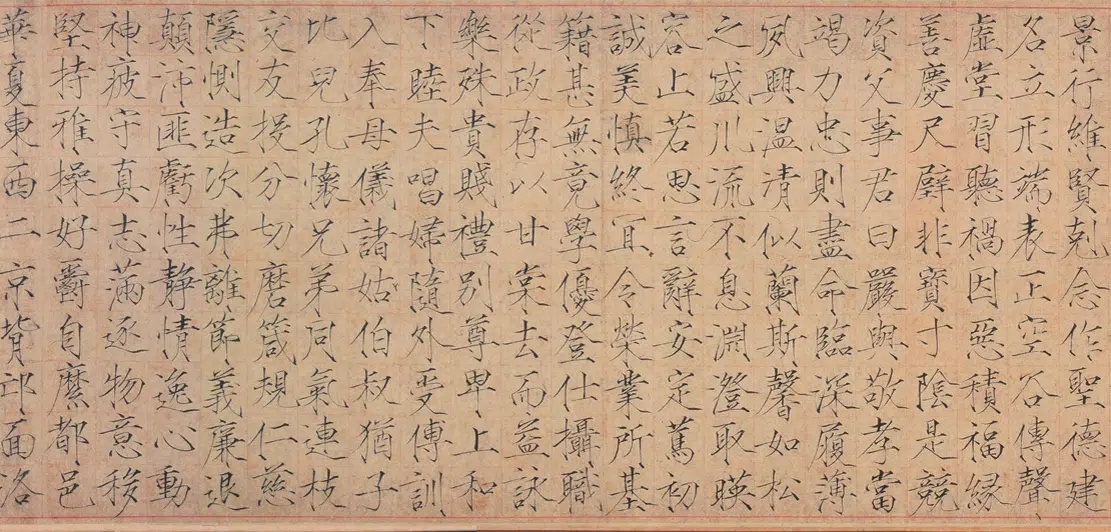 景行維賢剋念作聖德建
名立形端表正空谷傳聲
虛堂習聽禍因惡積福緣
善慶尺璧非寶寸陰是競
資父事君曰嚴與敬孝當
竭力忠則盡命臨深履薄
夙興温清似蘭斯馨如松
之盛川流不息淵澄取暎
容止若思言辭安定篤初
誠美慎終宜令榮業所基
籍甚無竟學優登仕攝職
從政存以甘棠去而益詠
樂殊貴賤禮別尊卑上和
下睦夫唱婦隨外受傅訓
入奉母儀諸姑伯叔猶子
比兒孔懷兄弟同氣連枝
交友投分切磨箴規仁慈
隱惻造次弗離節義廉退
顛沛匪虧性靜情逸心動
神疲守真志滿逐物意移
堅持雅操好爵自縻都邑
華夏東西二京背邙面洛